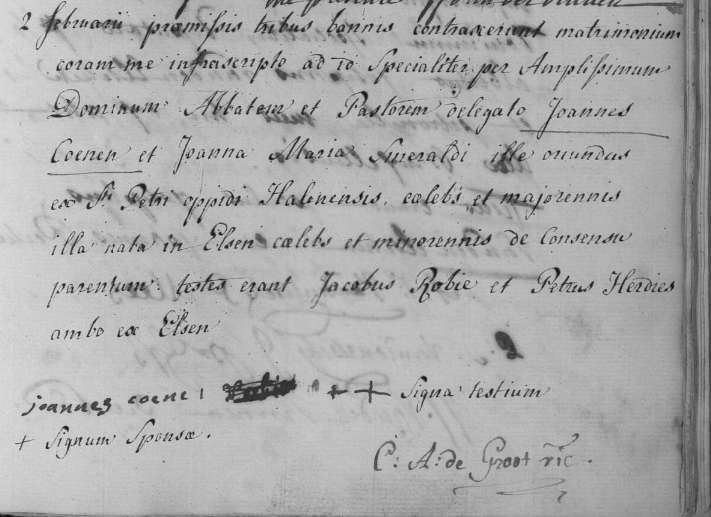 2 februarii præmissis tribus bannis contraxerunt matrimonium
coram me infrascripto ad id Specialiter per Amplissimum
Dominum Abbatem et Pastorem delegato Joannes
Coenen et Joanna Maria Smeraldi ille oriundus
ex St Petri oppidi Halenensis, cælebs et majorennis
illa nata in Elsen cælebs et minorennis de Consensu
parentum testes erant Jacobus Robie et Petrus Herdies
ambo ex Elsen
joannes coene + + Signa testium
+ Signum Sponsæ.
C: A: de Groot vic.